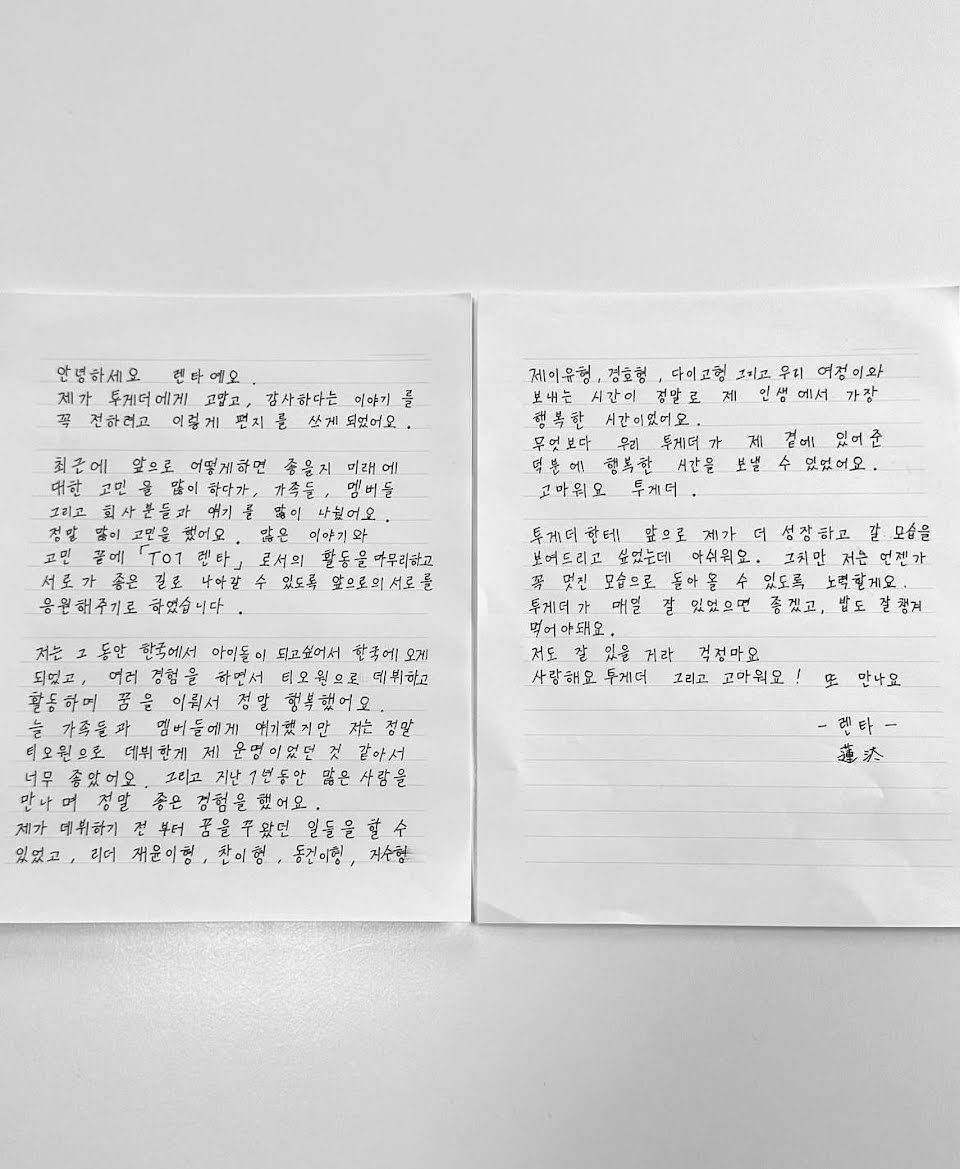 안녕하세요 렌타예요.
제가 투게더에게 고맙고, 감사하다는 이야기를
꼭 전하려고 이렇게 편지를 쓰게되었어요.
최근에 앞으로 어떻게하면 좋을지 미래에
대한 고민을 많이 하다가, 가족들, 멤버들
그리고 회사분들과 얘기를 많이 나눴어요.
정말 많이 고민을 했어요. 많은 이야기와
고민 끝에 「TO1 렌타」로서의 활동을 마무리하고
서로가 좋은 길로 나아갈 수 있도록 앞으로의 서로를
응원해주기로 하였습니다.
저는 그 동안 한국에서 아이돌이 되고싶어서 한국에 오게
되었고, 여러 경험을 하면서 티오원으로 데뷔하고
활동하며 꿈을 이뤄서 정말 행복했어요.
늘 가족들과 멤버들에게 얘기했지만 저는 정말
티오원으로 데뷔한게 제 운명이었던 것 같아서
너무 좋았어요. 그리고 지난 1년동안 많은 사람을
만나며 정말 좋은 경험을 했어요.
제가 데뷔하기 전부터 꿈을 꾸왔던 일들을 할 수
있었고, 리더 재윤이형, 찬이형, 동건이형, 지수형
제이유형, 경호형, 다이고형 그리고 우리 여정이와
보내는 시간이 정말로 제 인생에서 가장
행복한 시간이었어요.
무엇보다 우리 투게더가 제 곁에 있어준
덕분에 행복한 시간을 보낼 수 있었어요.
고마워요 투게더.
투게더한테 앞으로 제가 더 성장하고 갈 모습을
보여드리고 싶었는데 아쉬워요. 그치만 저는 언젠가
꼭 멋진 모습으로 돌아올 수 있도록 노력할게요.
투게더가 매일 잘 있었으면 좋겠고, 밥도 잘 챙겨
먹어야돼요.
저도 잘 있을 거라 걱정마요
사랑해요 투게더 그리고 고마워요! 또 만나요
- 렌타 -